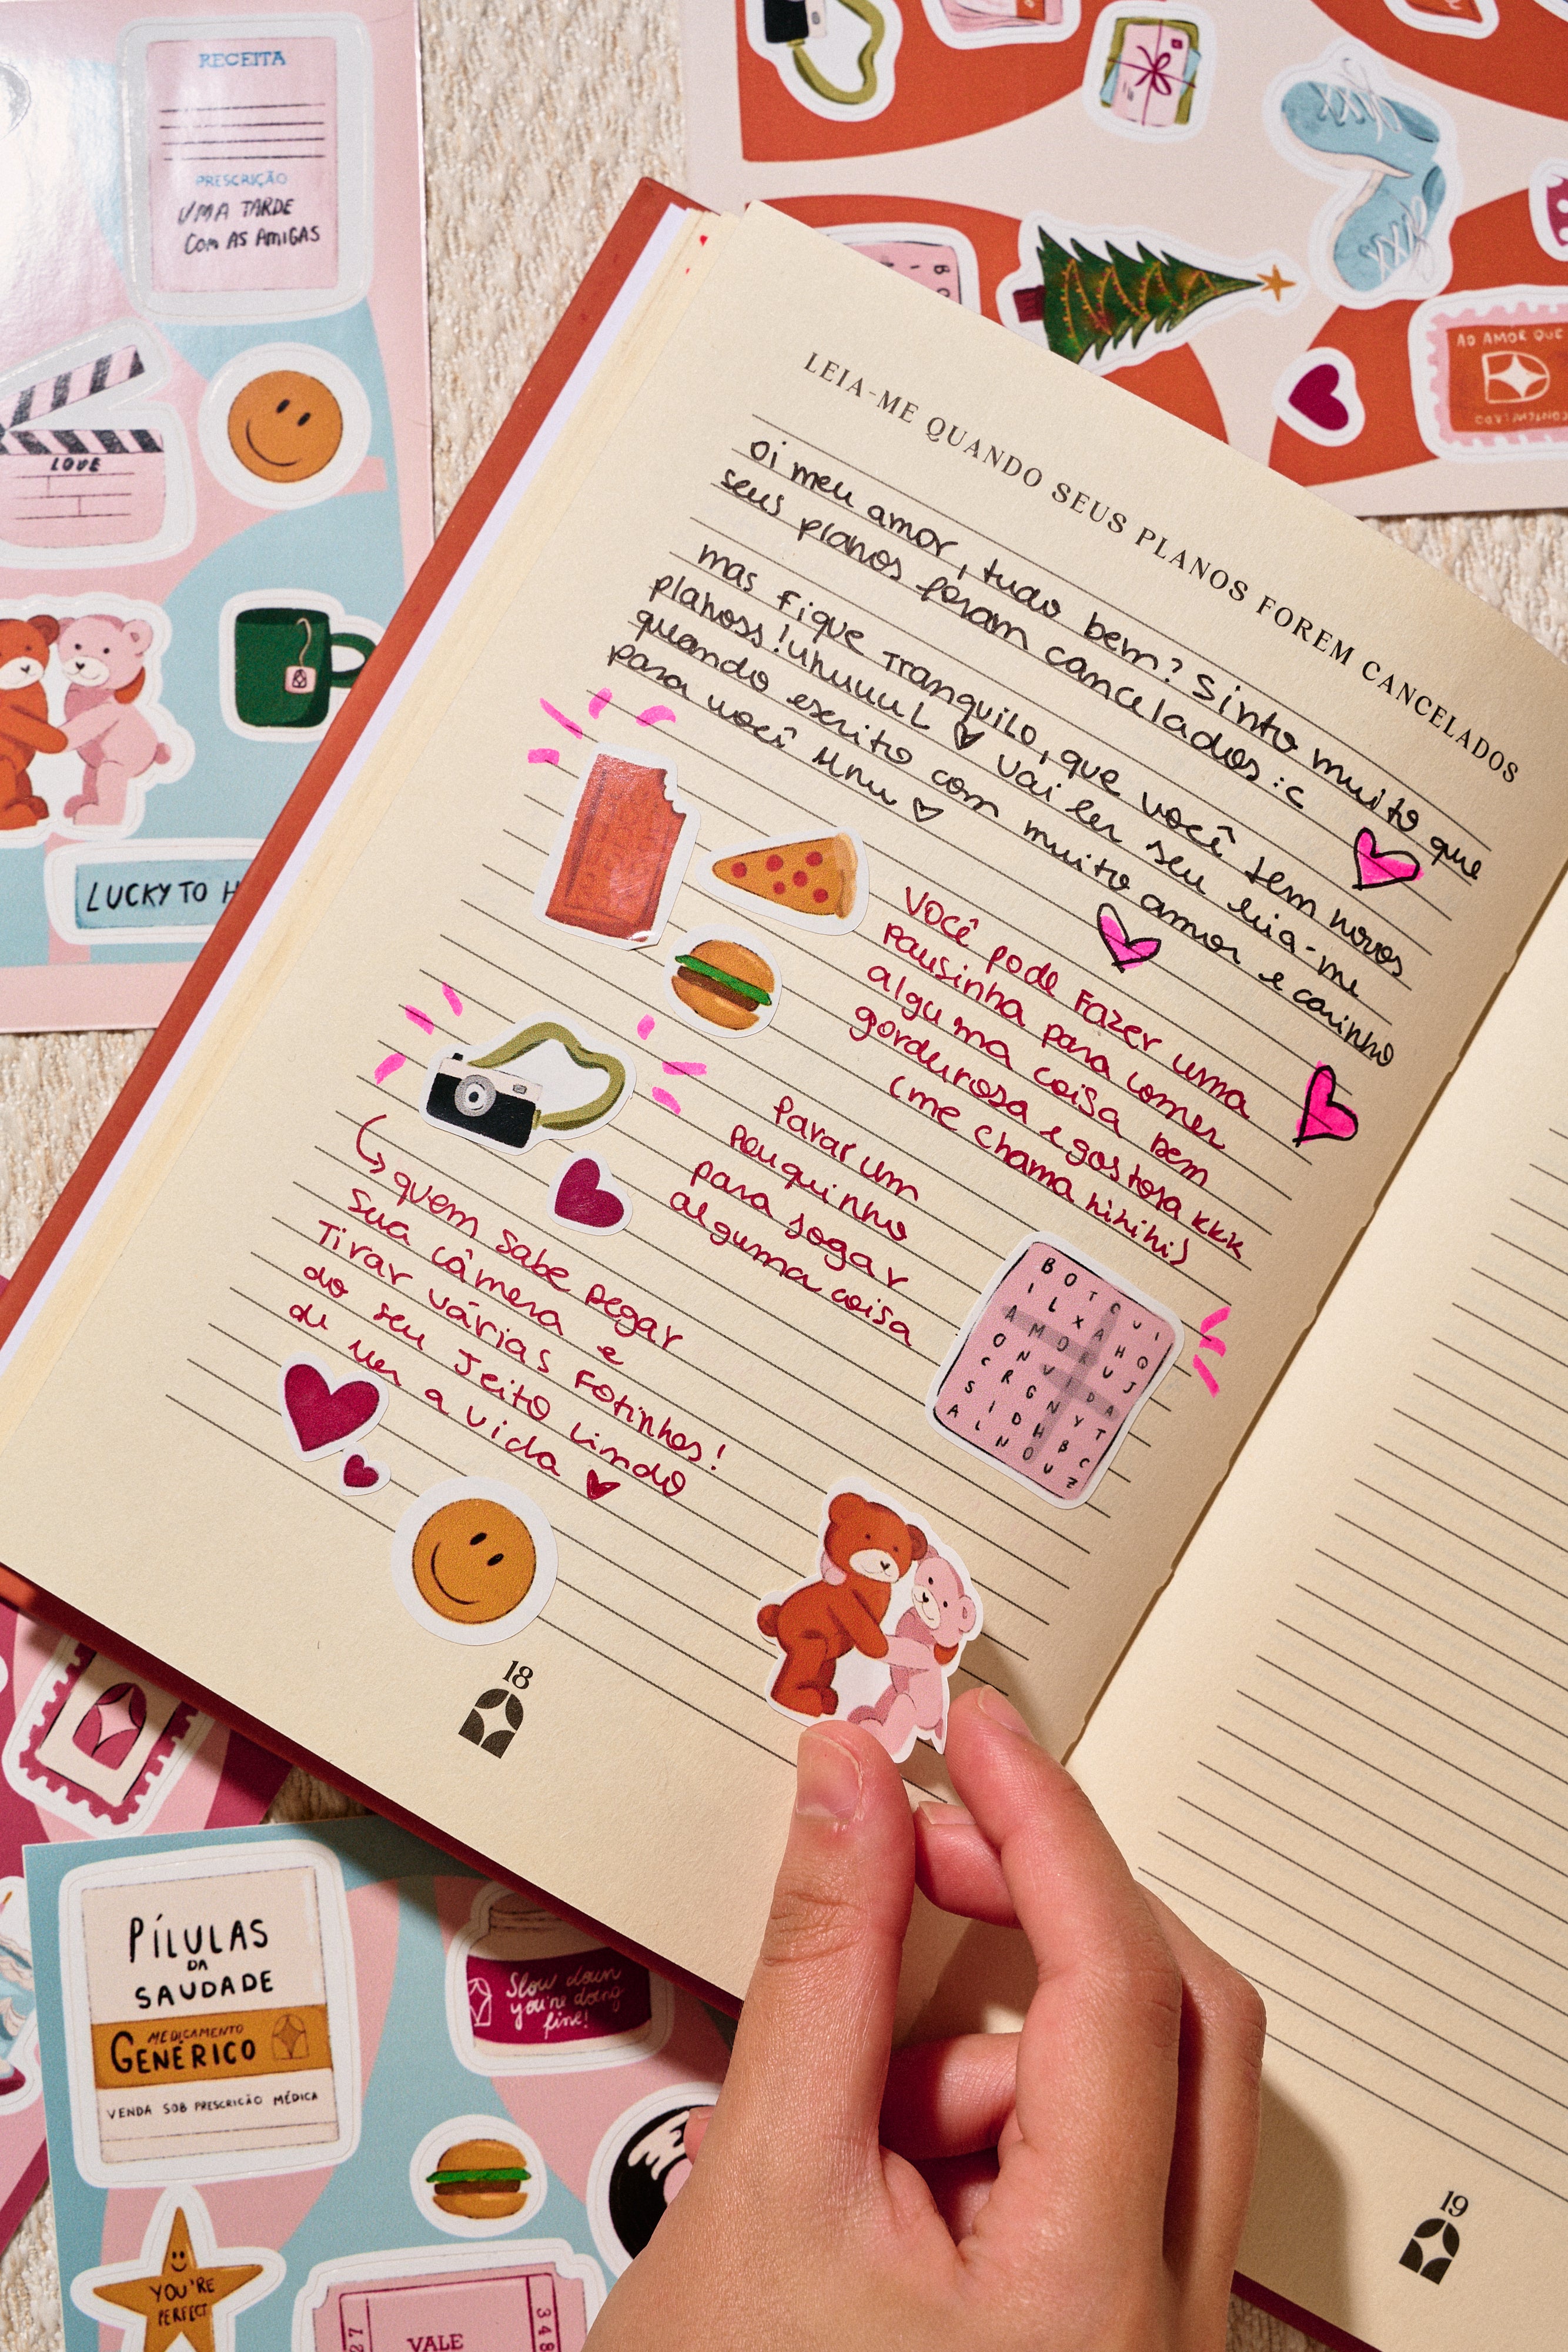 RECEITA
PRESCRIÇÃO
UMA TARDE
COM AS AMIGAS
LOVE
LUCKY TO H
AO AMOR QUE
LEIA-ME QUANDO SEUS PLANOS FOREM CANCELADOS
oi meu amor, tudo bem? Sinto muito que
seus planos foram cancelados :c
mas fique Tranquilo, que você tem novos
planoss! uhuuuL vai ler seu leia-me
quando escrito com muito amor e carinho
para você
Você pode Fazer uma
pausinha para comer
alguma coisa bem
gordurosa e gostosa kkk
(me chama hihihi)
Parar um
pouquinho
para jogar
alguma coisa
quem sabe pegar
sua câmera e
Tirar várias Fotinhos!
do seu Jeito Lindo
de ver a vida
BOTCUI
ILXAHO
AMORUJ
ONVIDA
CRGNYT
SIDHBC
ALNOUZ
18
19
PÍLULAS
DA
SAUDADE
MEDICAMENTO
GENÉRICO
VENDA SOB PRESCRIÇÃO MÉDICA
Slow down
you're doing
fine!
YOU'RE
PERFECT
VALE